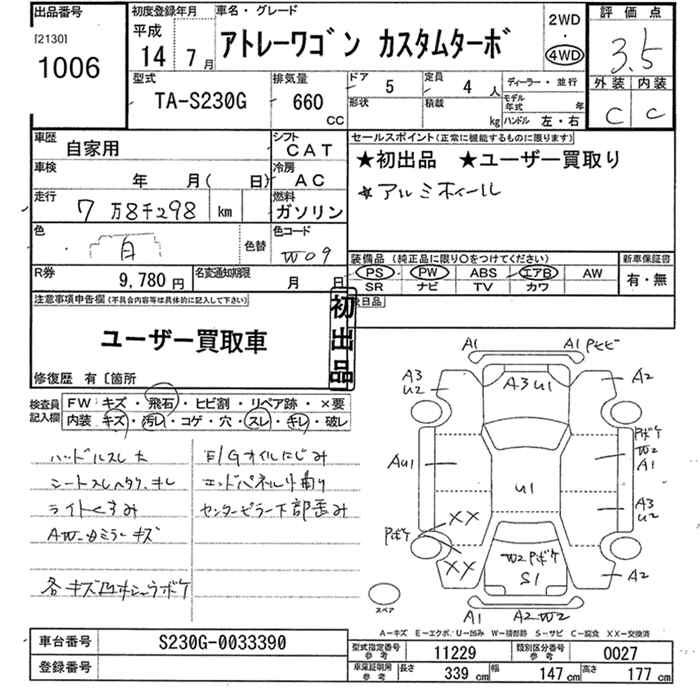 出品番号
[2130]
1006
初度登録年月
平成
14 7 月
車名・グレード
アトレーワゴン カスタムターボ
2WD
・
4WD
評価点
3.5
外装 内装
C C
型式
TA-S230G
排気量
660
CC
ドア 5
形状
定員 4 人
積載 kg
ディーラー・並行
モデル年式 年
ハンドル 左・右
車歴
自家用
シフト
CAT
車検
年 月( 日)
冷房
AC
走行
7 万8千298 km
燃料
ガソリン
色
白
色替
色コード
W09
R券
9,780 円
名変通知期限
月 日
セールスポイント(正常に機能するものに限ります)
★初出品 ★ユーザー買取り
★アルミホイール
装備品(純正品に限り○をつけてください)
PS PW ABS エアB AW
SR ナビ TV カワ
新車保証書
有・無
注意事項申告欄(不具合内容等は具体的に記入して下さい)
ユーザー買取車
修復歴 有〔箇所
初出品
検査員
記入欄
FW キズ・飛石・ヒビ割・リペア跡・×要
内装 キズ・汚レ・コゲ・穴・スレ・キレ・破レ
ハンドルスレ大
シートスレヘタリ、キレ
ライトくすみ
AW・ミラーキズ
各キズ凹ボケ
E/Gオイルにじみ
エンドパネル曲り
センターピラー下部歪み
A1
A1 Pヒビ
A3
U2
A3 U1
A2
AU1
Pボケ
W2
A1
U1
XX
A3
U2
Pボケ
XX
W2 Pボケ
S1
A2
スペア
A1
A2 W2
A-キズ E-エクボ U-凹み W-補修跡 S-サビ C-腐食 XX-交換済
車台番号
S230G-0033390
登録番号
型式指定番号
参考
11229
類別区分番号
参考
0027
車庫証明用
参考
長さ 339 cm
幅 147 cm
高さ 177 cm